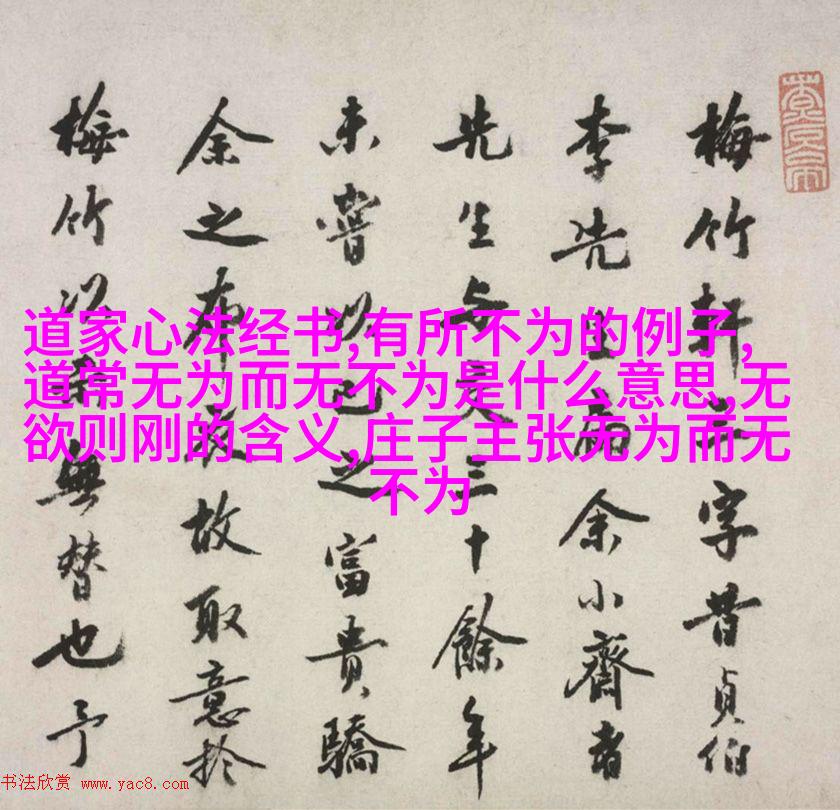 道家心法经书,有所不为的例子,
道常无为而无不为是什么意思,无
欲则刚的含义,庄子主张无为而无
不为
梅竹軒字昔貞伯
李先生扁余小齋者
先生与三十餘年
未嘗以己之富貴驕
余之布故取意於
梅竹以無替也予
书法欣赏 www.yac8.com